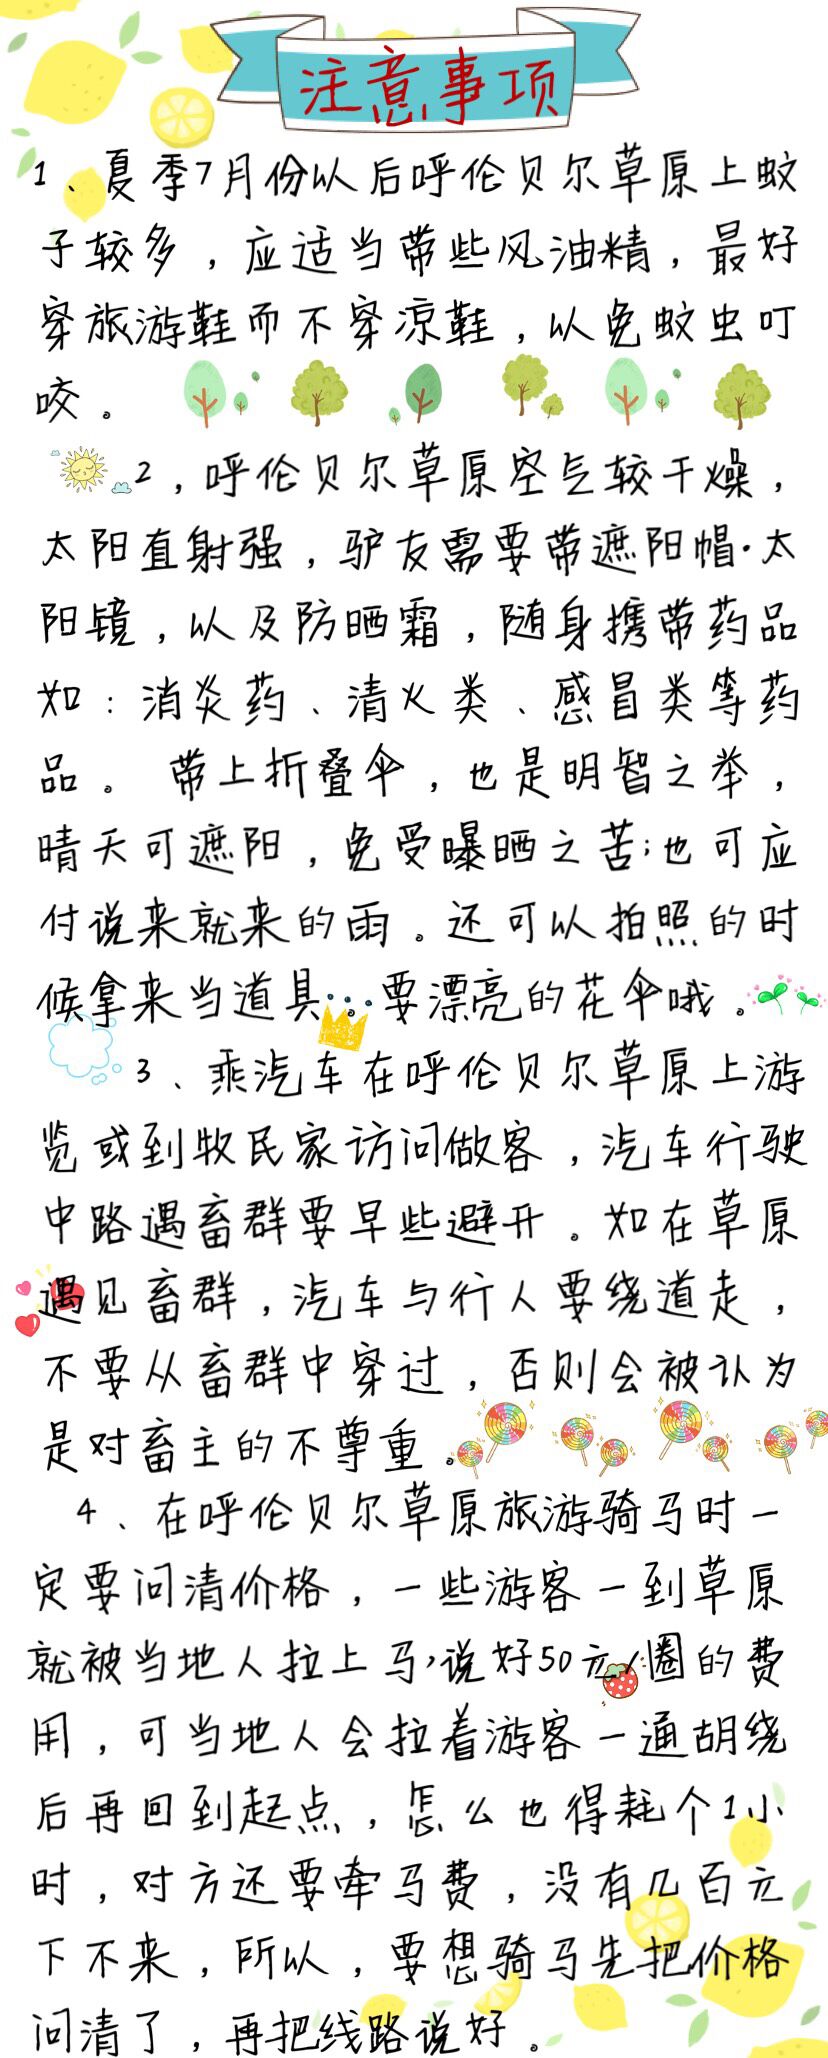 注意事项
1、夏季7月份以后呼伦贝尔草原上蚊
子较多，应适当带些风油精，最好
穿旅游鞋而不穿凉鞋，以免蚊虫叮
咬。
2，呼伦贝尔草原空气较干燥，
太阳直射强，驴友需要带遮阳帽·太
阳镜，以及防晒霜，随身携带药品
如：消炎药、清火类、感冒类等药
品。 带上折叠伞，也是明智之举，
晴天可遮阳，免受曝晒之苦；也可应
付说来就来的雨。还可以拍照的时
候拿来当道具。要漂亮的花伞哦。
3、乘汽车在呼伦贝尔草原上游
览或到牧民家访问做客，汽车行驶
中路遇畜群要早些避开。如在草原
遇见畜群，汽车与行人要绕道走，
不要从畜群中穿过，否则会被认为
是对畜主的不尊重。
4、在呼伦贝尔草原旅游骑马时一
定要问清价格，一些游客一到草原
就被当地人拉上马，说好50元/圈的费
用，可当地人会拉着游客一通胡绕
后再回到起点，怎么也得耗个1小
时，对方还要牵马费，没有几百元
下不来，所以，要想骑马先把价格
问清了，再把线路说好。